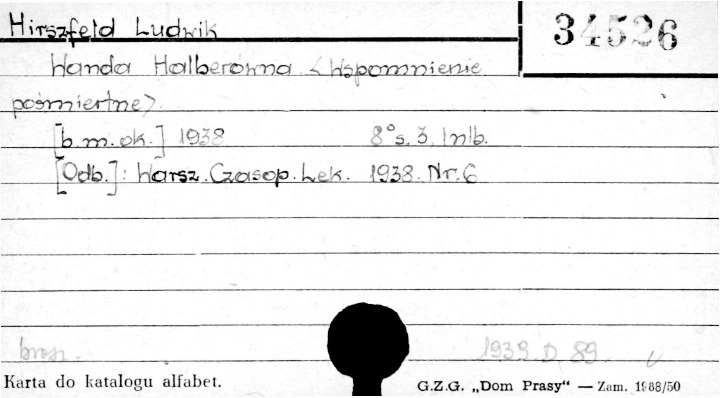 Hirszfeld Ludwik
34526
Wanda Halberówna <Wspomnienie
pośmiertne>.
[b.m.ok.] 1938 8° s. 3. 1 nlb.
[Odb.]: Warsz. Czasop. Lek. 1938. Nr. 6
brosz. 1939 D 89.
Karta do katalogu alfabet.
G.Z.G. „Dom Prasy“ — Zam. 1988/50